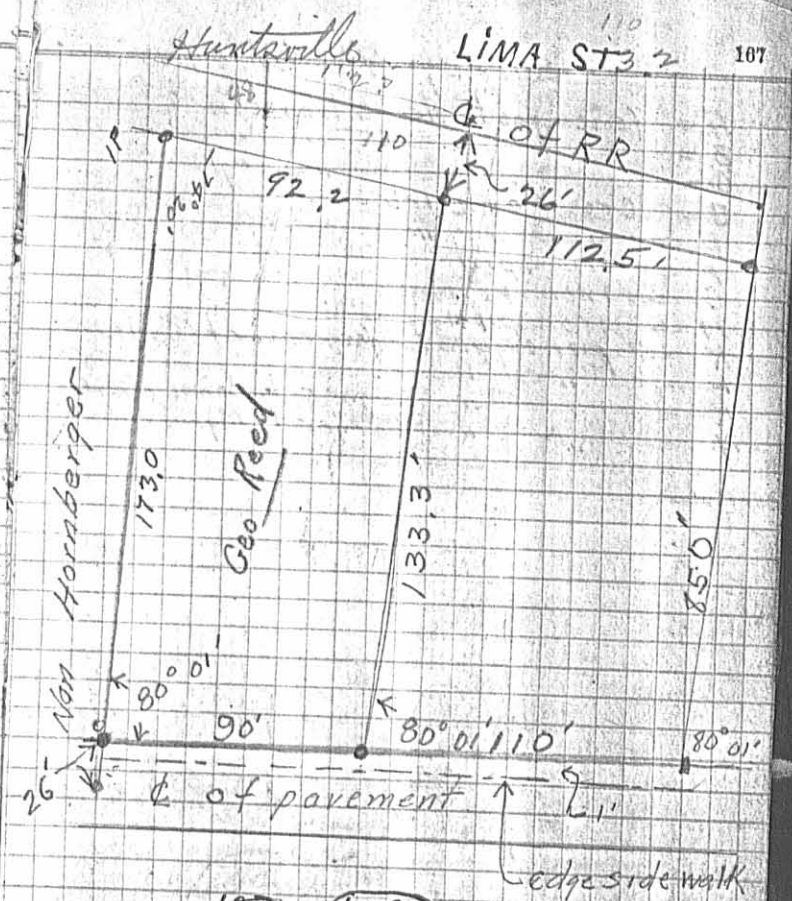 110
Huntsville LIMA ST 3.2 107
112.5
48
110
℄ of RR
1P
92.2
26'
74° 20'
112.5'
Von Hornberger
173.0
Geo Reed
133.3'
85.0'
80° 01'
90'
80° 01' 110'
80° 01'
26'
℄ of pavement
1'
edge side walk